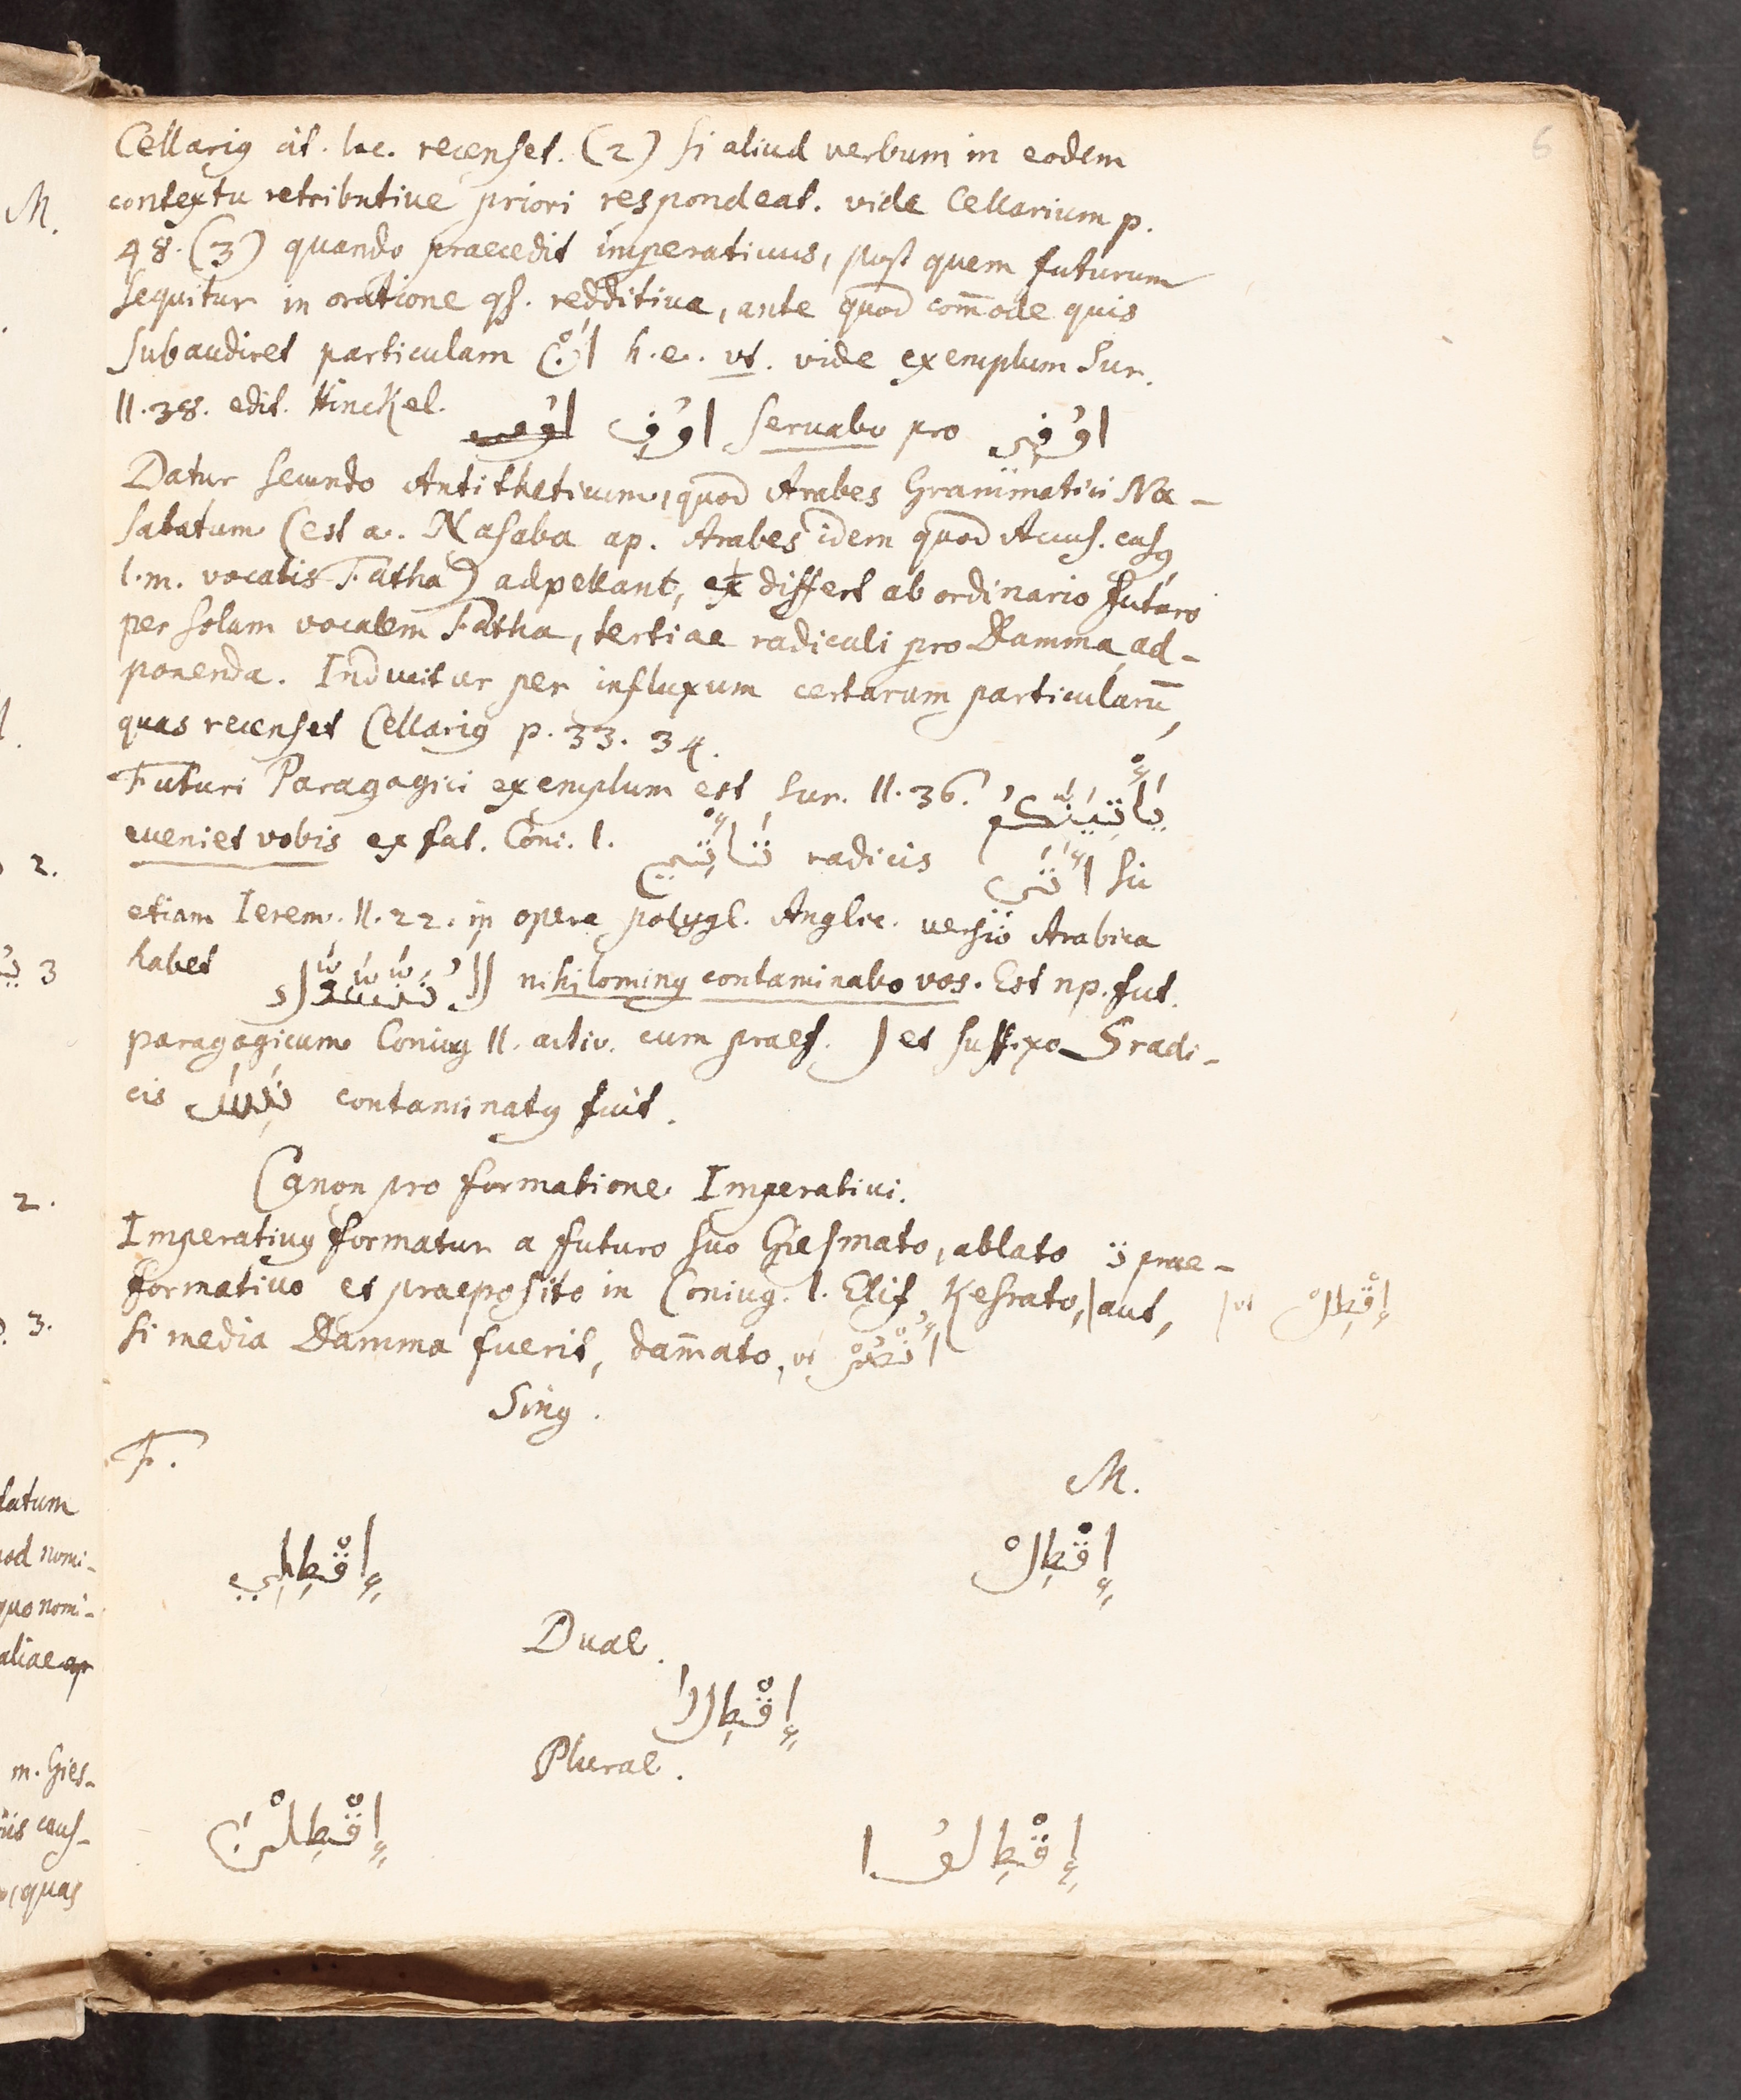 6
Cellarig cit. loc. recenset. (2) si aliud verbum in eodem
contextu retributive priori respondeat. vide Cellarium p.
48. (3) quando praecedit imperativus, post quem futurum
sequitur in oratione qs. redditiva, ante quod com̄ode quis
subaudiret particulam اَنْ h. e. ut. vide exemplum Sur.
II. 38. edit. Hinckel. اوُفِ servabo pro اوُفِي
Datur secundo Antitheticum, quod Arabes Grammatici Na-
sabatum (est a. Nasaba ap. Arabes idem quod Accus. casg
l. m. vocalis Fatha) adpellant, et differt ab ordinario futuro
per solam vocalem Fatha, tertiae radicali pro Damma ad-
ponenda. Inducitur per influxum certarum particularū,
quas recenset Cellarig p. 33. 34.
Futuri Paragogici exemplum est Sur. II. 36. يَأْتِيَنَّكُمْ
eveniet vobis ex fut. Coni. I. يَأْتِي radicis أَتَى Sic
etiam Ierem. II. 22. in opere polygl. Anglic. versio Arabica
habet لَأُنَجِّسَنَّكِ nihiloming contaminabo vos. Est np. fut.
paragogicum Coniug II. activ. cum praef. ل et suffixo ك radi-
cis نَجِسَ contaminatg fuit.
Canon pro formatione Imperativi.
Imperativg formatur a futuro suo Giesmato, ablato ت prae-
formativo et praeposito in Coniug. I. Elif Kesrato, | aut, | ut إِقْطِلْ
si media Damma fuerit, dam̄ato, ut أُنْصُرْ
Sing.
F. M.
إِقْطِلِي إِقْطِلْ
Dual.
إِقْطِلَا
Plural.
إِقْطِلْنَ إِقْطِلُوا